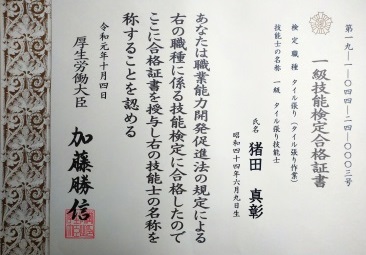 第一九-一-〇四四-二四-〇〇〇三号
一級技能検定合格証書
検定職種 タイル張り(タイル張り作業)
技能士の名称 一級 タイル張り技能士
氏名 猪田 真彰
昭和四十四年六月九日生
あなたは職業能力開発促進法の規定による
右の職種に係る技能検定に合格したので
ここに合格証書を授与し右の技能士の名称を
称することを認める
令和元年十月四日
厚生労働大臣 加藤勝信